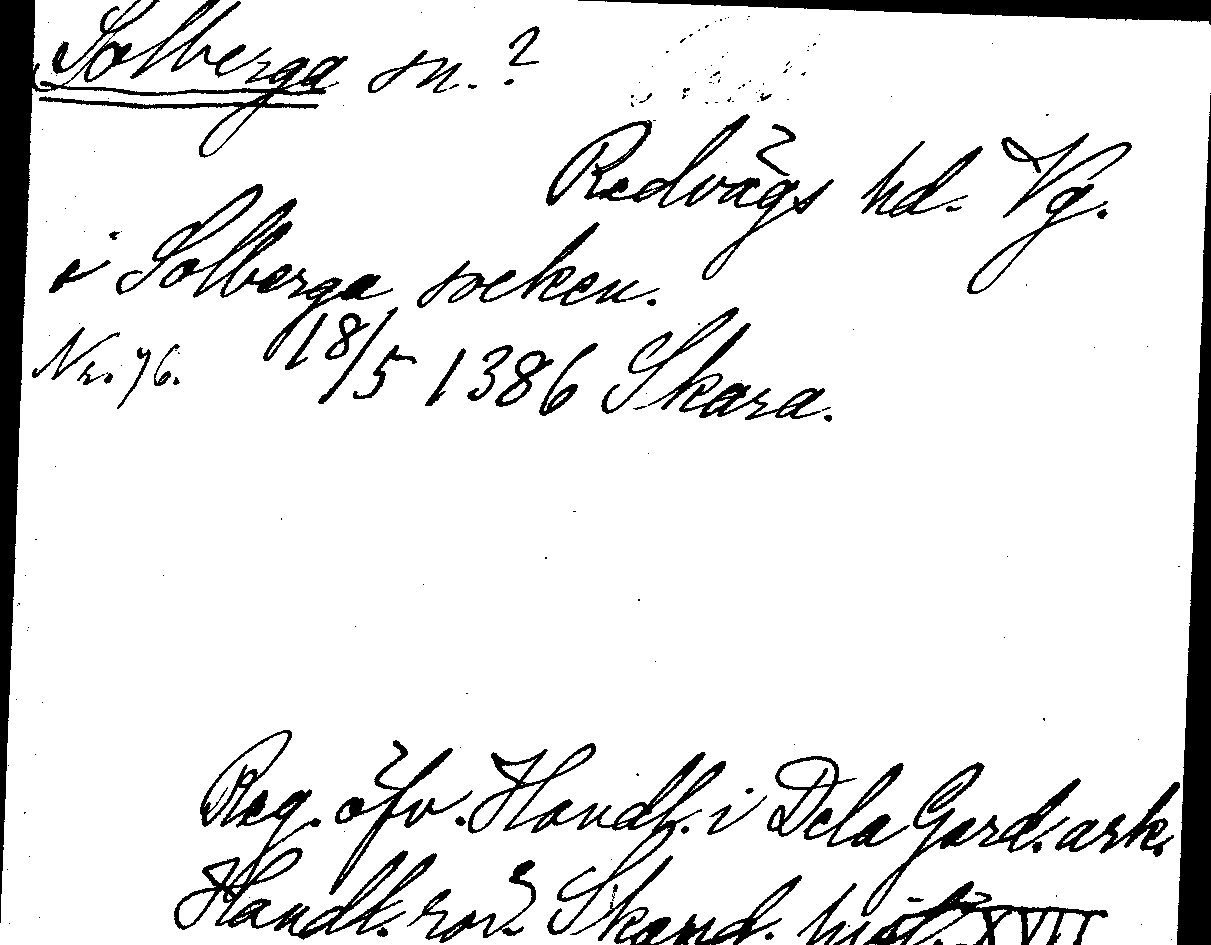 Solberga sn.?
Redvägs hd. Vg.
i Solberga socken.
Nr. 76. 18/5 1386 Skara.
Reg. öfv. Handl. i Dela Gard. ark.
Handl. rör. Skand. hist. XVII